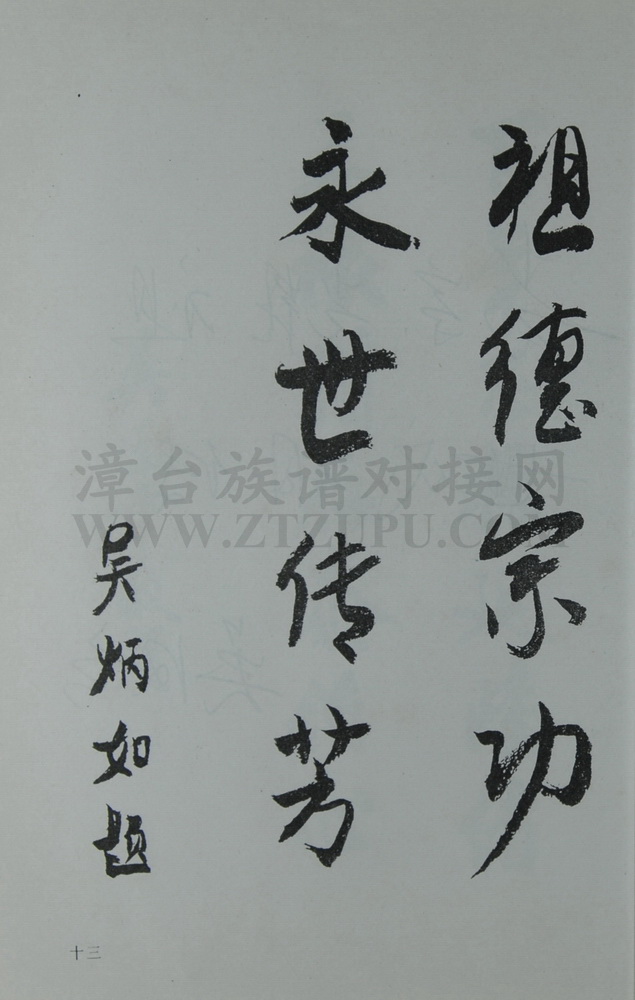 祖德宗功
永世传芳
吴炳如题
漳台族谱对接网
WWW.ZTZUPU.COM
十三